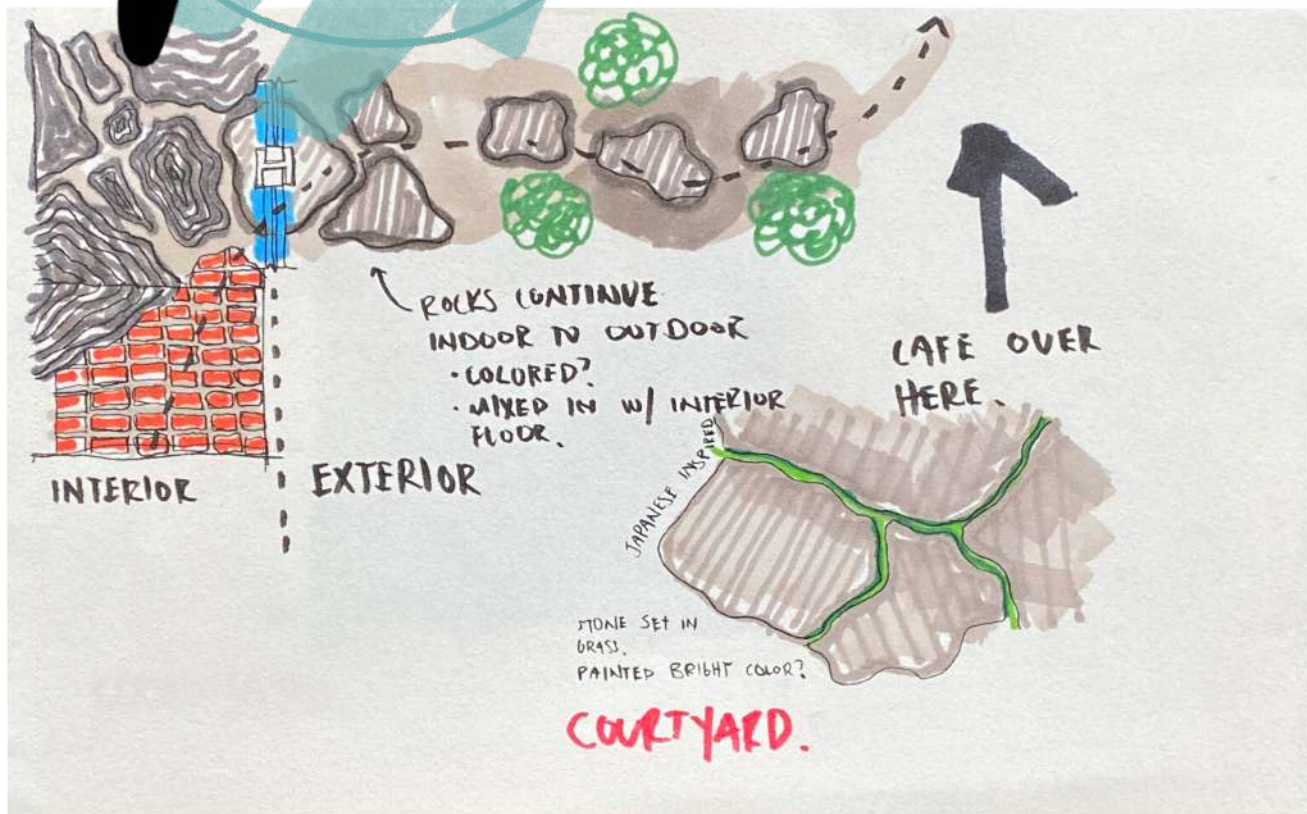 ROCKS CONTINUE
INDOOR TO OUTDOOR
• COLORED?
• MIXED IN W/ INTERIOR
FLOOR.
CAFE OVER
HERE.
INTERIOR
EXTERIOR
JAPANESE INSPIRED
STONE SET IN
GRASS.
PAINTED BRIGHT COLOR?
COURTYARD.